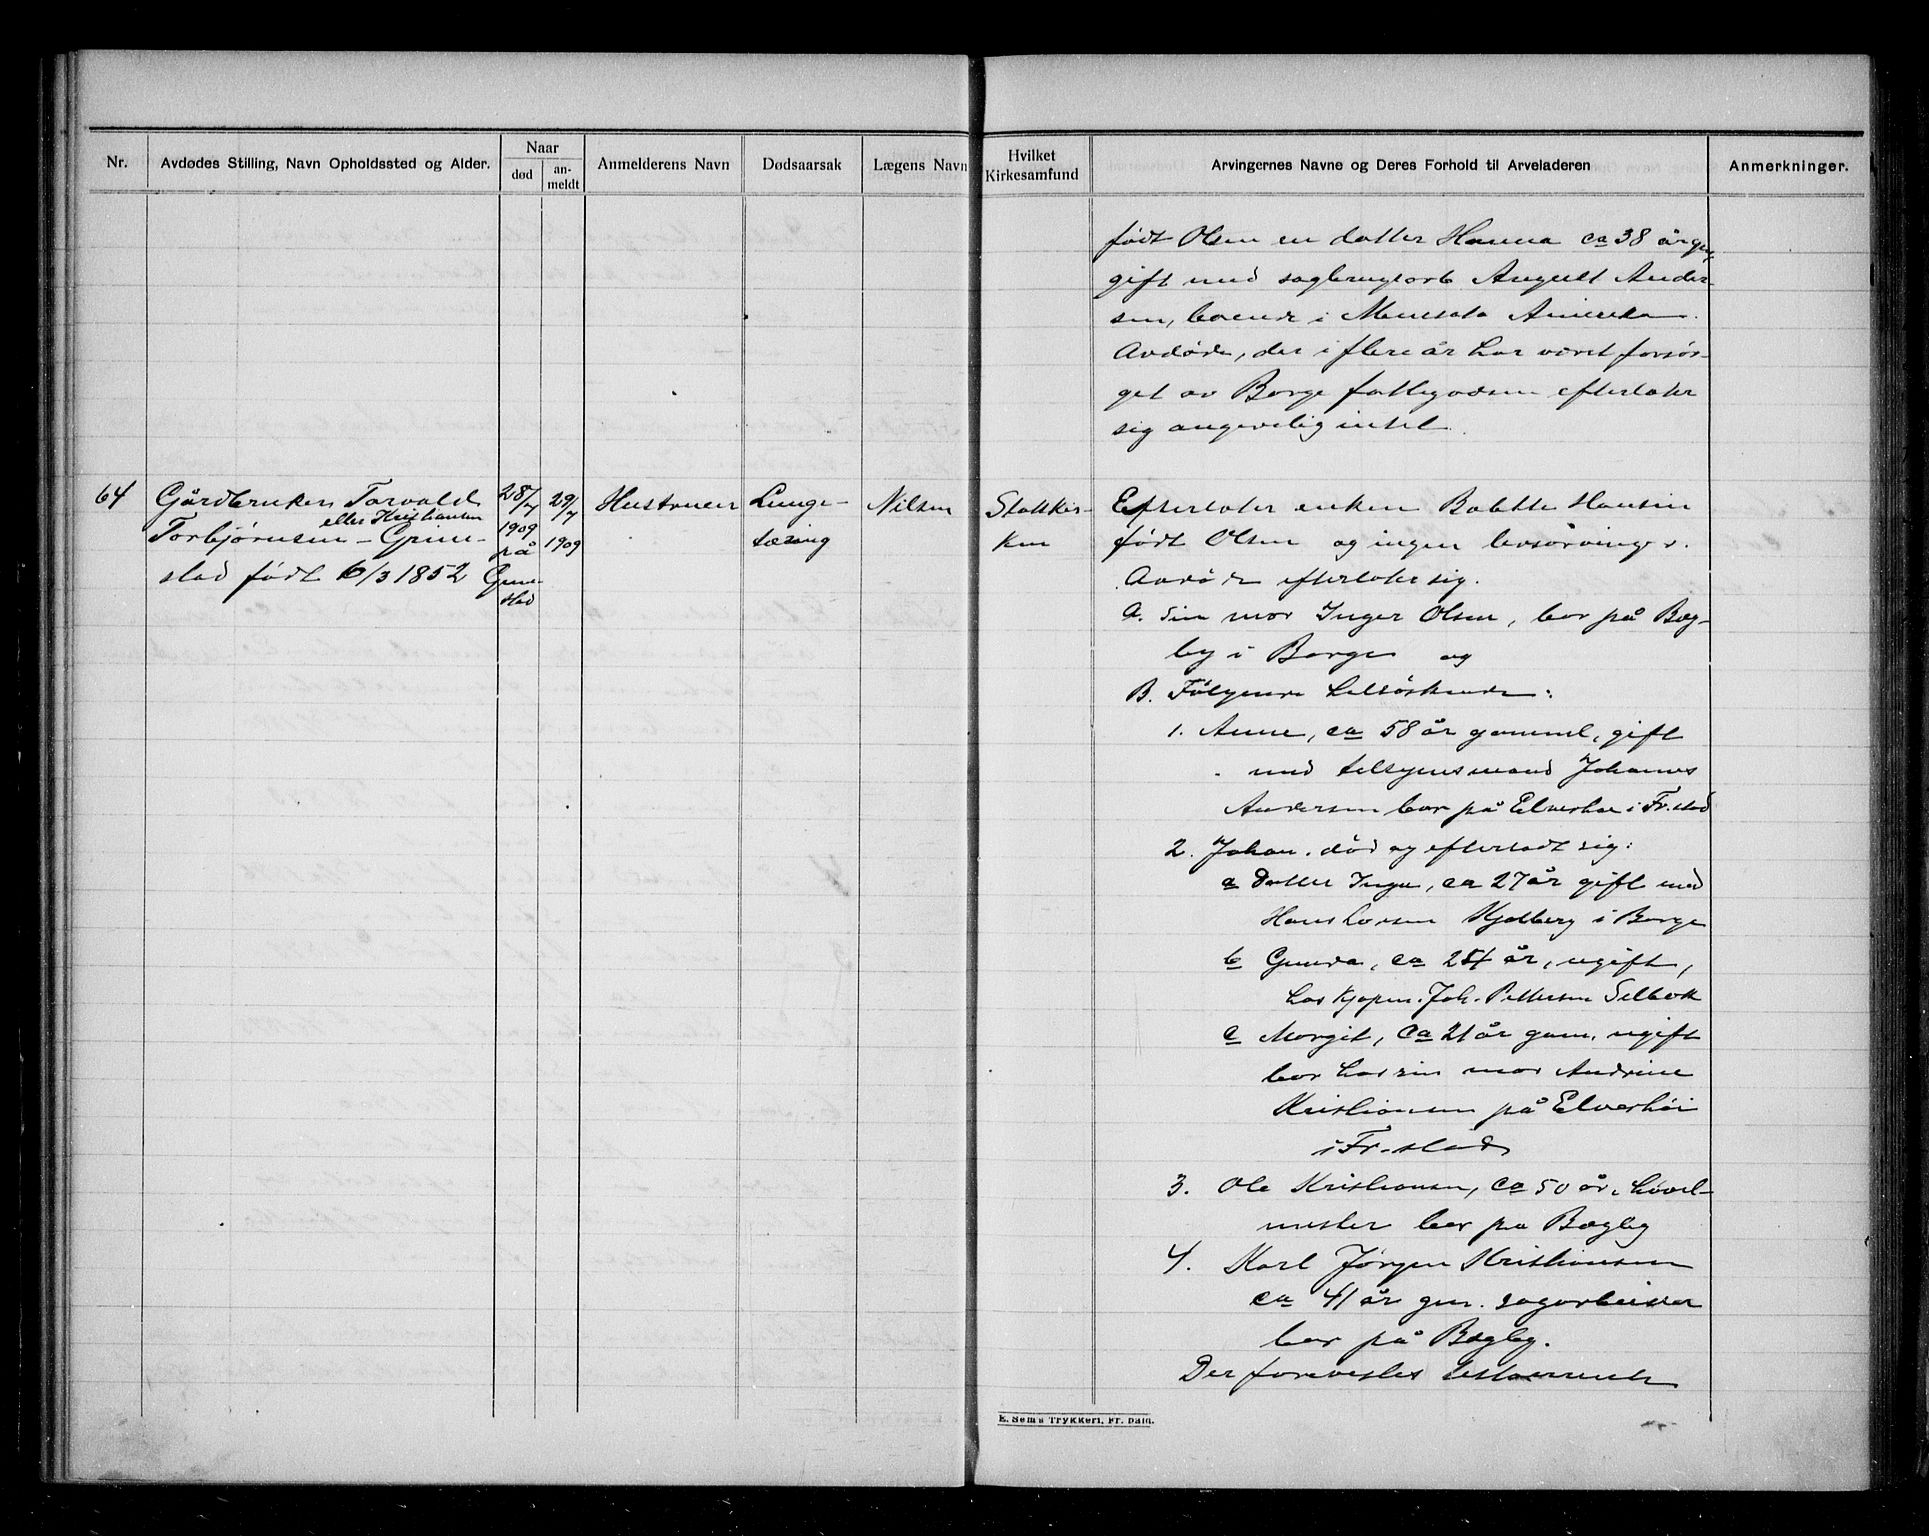 Nr.
Avdødes Stilling, Navn Opholdssted og Alder.
Naar
død
an-
meldt
Anmelderens Navn
Dødsaarsak
Lægens Navn
Hvilket
Kirkesamfund
Arvingernes Navne og Deres Forhold til Arveladeren
Anmerkninger.
født Olsen en datter Hanna ca 38 år gm,
gift med sagbrugsarb August Ander-
sen, boende i Menesota Amerika.
Avdøde, der i flere år har været forsør-
get av Borge fattigvæsen efterlater
sig angivelig intet.
64
Gårdbruker Torvald
eller Kristiansen
Torbjørnsen - Grim-
stad født 6/3 1852
28/7
1909
på
Grim-
stad
29/7
1909
Hustruen
Lunge-
tæring
Nilsen
Statskir-
ken
Efterlater enken Bolette Hansin
født Olsen og ingen livsarvinger.
Avdøde efterlater sig.
A. sin mor Inger Olsen, bor på Bæg-
by i Borge og
B. Følgende helsøskende:
1. Anne, ca 58 år gammel, gift
med tilsynsmand Johannes
Andersen bor på Elverhøi i Fr.stad
2. Johan. død og efterladt sig:
a Datter Inga, ca 27 år gift med
Hans Larsen Kjølberg i Borge
b Gunda, ca 24 år, ugift,
hos kjøpm. Joh. Pettersen Selbak
c Margit, ca 21 år gam. ugift
bor hos sin mor Andrine
Kristiansen på Elverhøi
i Fr.stad
3. Ole Kristiansen, ca 50 år, høvel-
mester bor på Bægby
4. Karl Jørgen Kristiansen
ca 41 år gm. sagarbeider
bor på Bægby.
Der forevistes testamente
E. Sem's Trykkeri, Fr.hald.